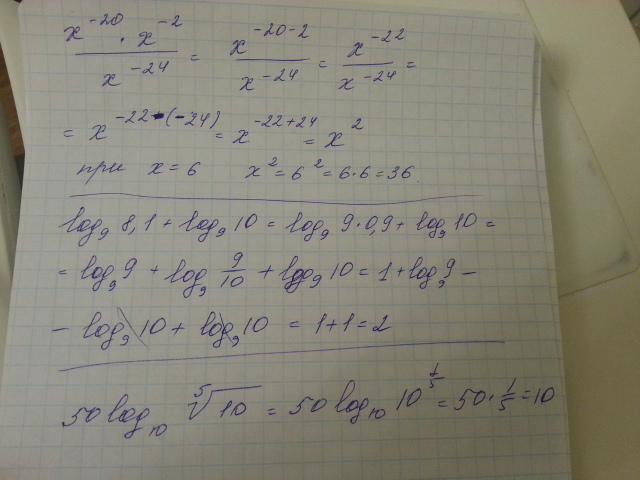 x^-20 · x^-2 / x^-24 = x^-20-2 / x^-24 = x^-22 / x^-24 =
= x^-22-(-24) = x^-22+24 = x^2
при x = 6 x^2 = 6^2 = 6·6 = 36.
log₉ 8,1 + log₉ 10 = log₉ 9·0,9 + log₉ 10 =
= log₉ 9 + log₉ 9/10 + log₉ 10 = 1 + log₉ 9 -
- log₉ 10 + log₉ 10 = 1+1 = 2
50 log₁₀ ⁵√10 = 50 log₁₀ 10^1/5 = 50·1/5 = 10